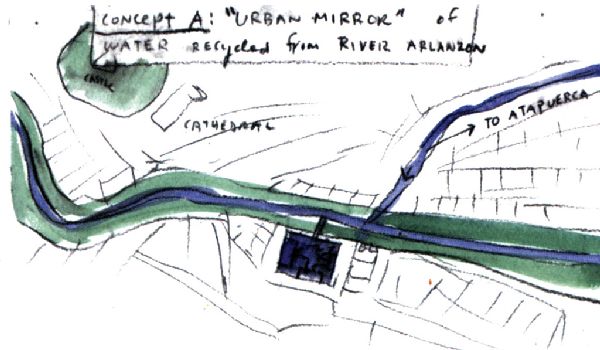 CONCEPT A: "URBAN MIRROR" of
WATER RECYCLED from RIVER ARLANZON
CASTLE
CATHEDRAL
TO ATAPUERCA